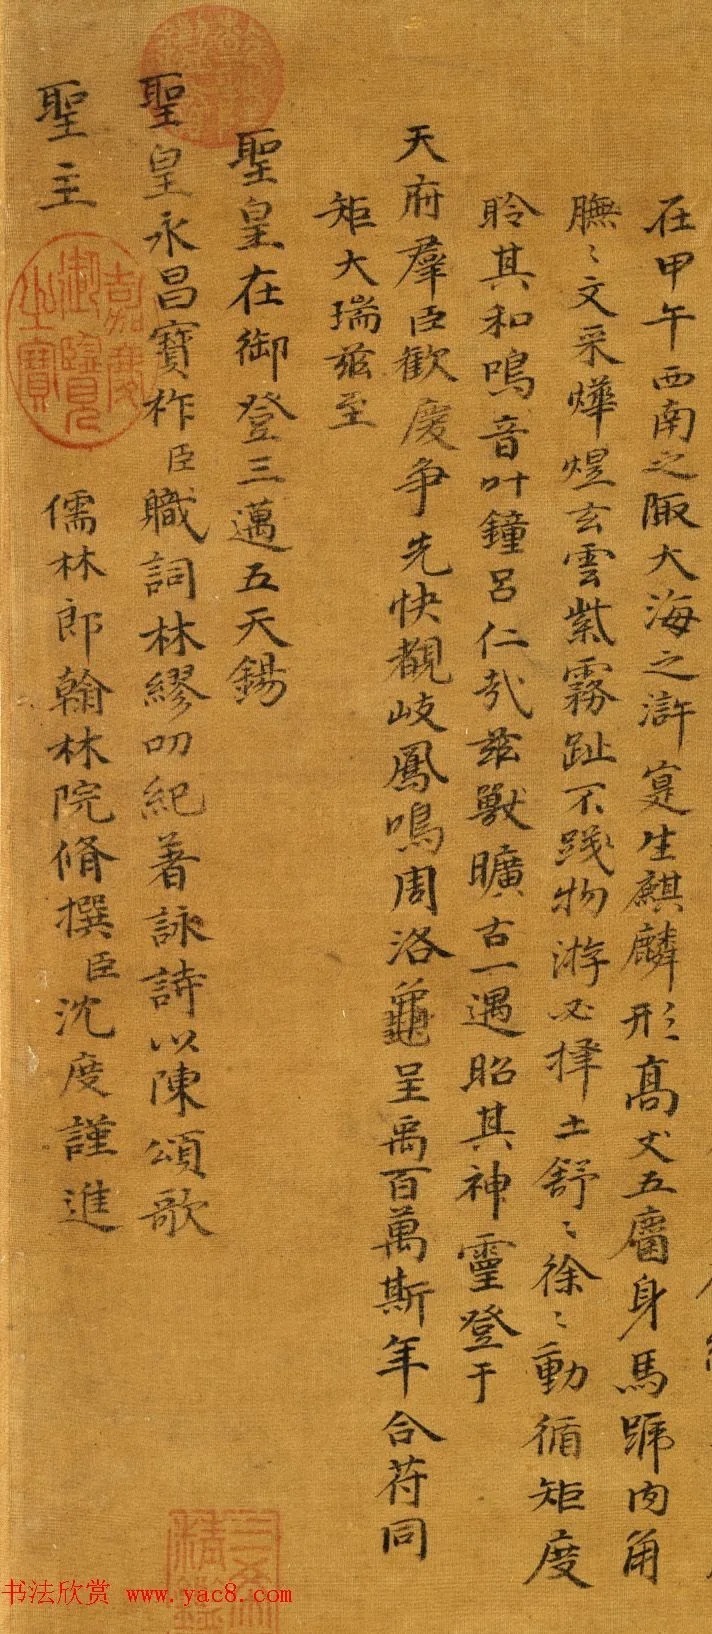 在甲午西南之陬大海之滸寔生麒麟形高丈五麕身馬蹄肉角
膴〻文采燁煜玄雲紫霧趾不踐物游必擇土舒〻徐〻動循矩度
聆其和鳴音叶鐘呂仁哉兹獸曠古一遇昭其神靈登于
天府羣臣歡慶争先快覩岐鳳鳴周洛龜呈禹百萬斯年合苻同
矩大瑞兹至
聖皇在御登三邁五天錫
聖皇永昌寶祚臣職詞林繆叨紀著詠詩以陳頌歌
聖主
儒林郎翰林院脩撰臣沈度謹進
嘉慶御覽之寶
书法欣赏 www.yac8.com